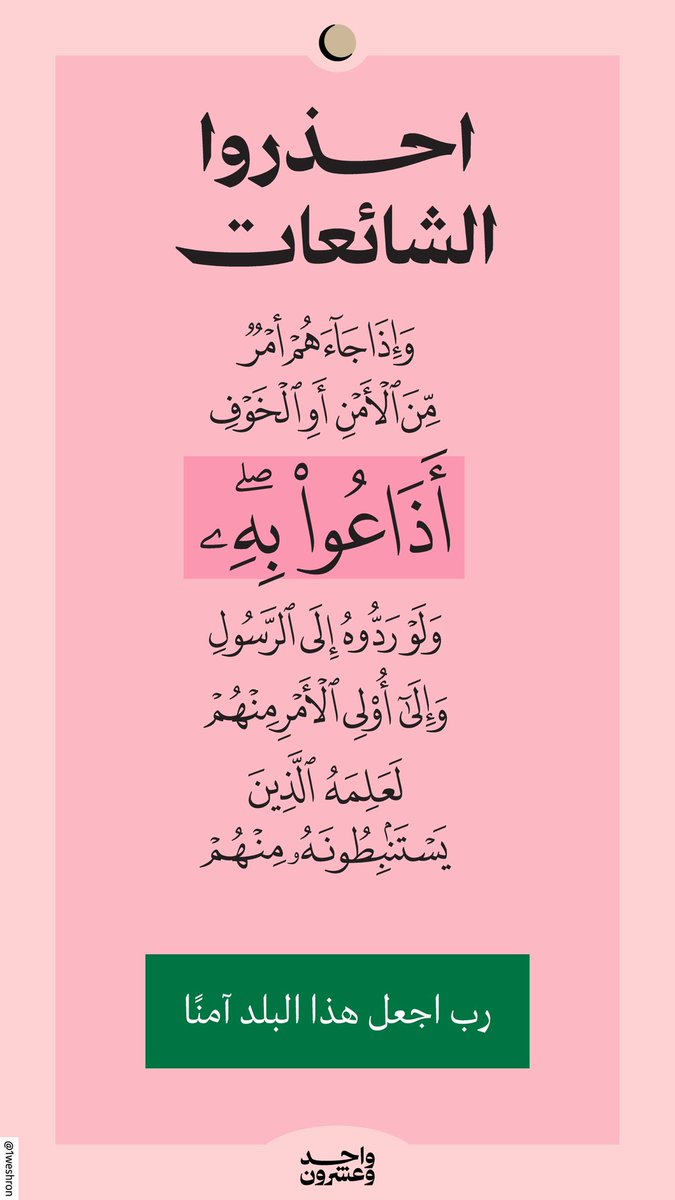 احذروا
الشائعات
وَإِذَا جَآءَهُمۡ أَمۡرٞ
مِّنَ ٱلۡأَمۡنِ أَوِ ٱلۡخَوۡفِ
أَذَاعُواْ بِهِۦۖ
وَلَوۡ رَدُّوهُ إِلَى ٱلرَّسُولِ
وَإِلَىٰٓ أُوْلِي ٱلۡأَمۡرِ مِنۡهُمۡ
لَعَلِمَهُ ٱلَّذِينَ
يَسۡتَنۢبِطُونَهُۥ مِنۡهُمۡ
رب اجعل هذا البلد آمنًا
واحد
وعشرون
@1weshron